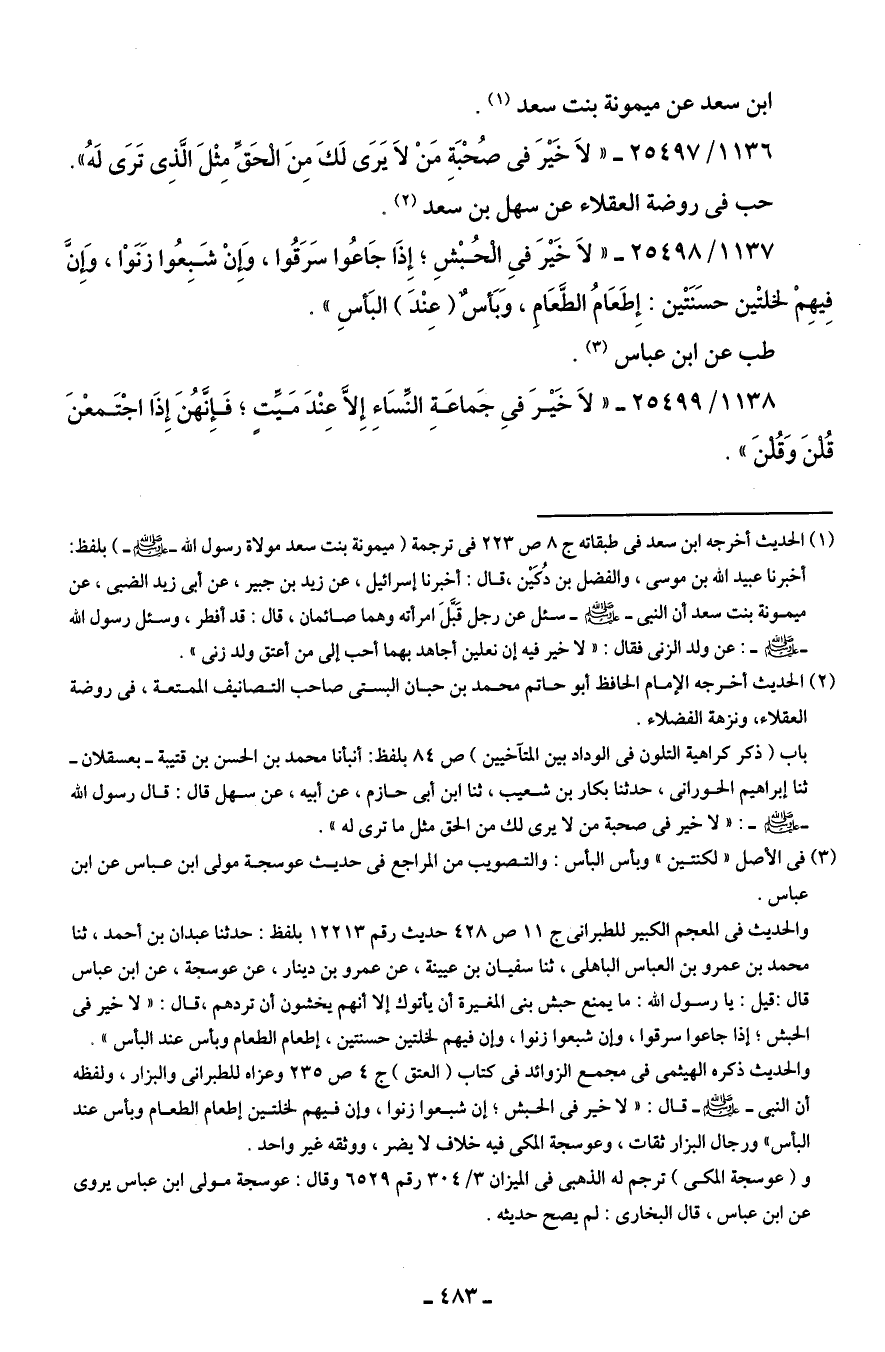 ابن سعد عن ميمونة بنت سعد (١) .
٢٥٤٩٧/١١٣٦ ـ « لاَ خَيْرَ فى صُحْبَةِ مَنْ لاَ يَرَى لَكَ مِنَ الْحَقِّ مِثْلَ الَّذى تَرَى لَهُ».
حب فى روضة العقلاء عن سهل بن سعد (٢) .
٢٥٤٩٨/١١٣٧ ـ « لاَ خَيْرَ فىِ الْحُبْشِ ؛ إِذَا جَاعُوا سَرَقُوا ، وَإِنْ شَبِعُوا زَنَوْا ، وَإِنَّ
فِيهِمْ لخلتْين حسَنَتْين : إِطَعَامُ الطَّعَامِ ، وَبَأسٌ ( عِنْدَ ) البَأسِ » .
طب عن ابن عباس (٣) .
٢٥٤٩٩/١١٣٨ ـ « لاَ خَيْرَ فىِ جَماعَةِ النِّسَاءِ إِلاَّ عِنْدَ مَيِّتٍ ؛ فَإِنَّهُنَ إِذَا اجْتَمعْنَ
قُلْنَ وَقُلْنَ » .
(١) الحديث أخرجه ابن سعد فى طبقاته ج ٨ ص ٢٢٣ فى ترجمة ( ميمونة بنت سعد مولاة رسول الله ـ ﷺ ـ ) بلفظ:
أخبرنا عبيد الله بن موسى ، والفضل بن دُكَيْن ،قال : أخبرنا إسرائيل ، عن زيد بن جبير ، عن أبى زيد الضبى ، عن
ميمونة بنت سعد أن النبى ـ ﷺ ـ سئل عن رجل قَبَّلَ امرأته وهما صائمان ، قال : قد أفطر ، وسئل رسول الله
ـ ﷺ ـ : عن ولد الزنى فقال : « لا خير فيه إن نعلين أجاهد بهما أحب إلى من أعتق ولد زنى » .
(٢) الحديث أخرجه الإمام الحافظ أبو حاتم محمد بن حبان البستى صاحب التصانيف الممتعة ، فى روضة
العقلاء، ونزهة الفضلاء .
باب ( ذكر كراهية التلون فى الوداد بين المتآخيين ) ص ٨٤ بلفظ: أنبأنا محمد بن الحسن بن قتيبة ـ بعسقلان ـ
ثنا إبراهيم الحورانى ، حدثنا بكار بن شعيب ، ثنا ابن أبى حازم ، عن أبيه ، عن سهل قال : قال رسول الله
ـ ﷺ ـ : « لا خير فى صحبة من لا يرى لك من الحق مثل ما ترى له » .
(٣) فى الأصل « لكنتين » وبأس البأس : والتصويب من المراجع فى حديث عوسجة مولى ابن عباس عن ابن
عباس .
والحديث فى المعجم الكبير للطبرانى ج ١١ ص ٤٢٨ حديث رقم ١٢٢١٣ بلفظ : حدثنا عبدان بن أحمد ، ثنا
محمد بن عمرو بن العباس الباهلى ، ثنا سفيان بن عيينة ، عن عمرو بن دينار ، عن عوسجة ، عن ابن عباس
قال :قيل : يا رسول الله : ما يمنع حبش بنى المغيرة أن يأتوك إلا أنهم يخشون أن تردهم ،قال : « لا خير فى
الحبش ؛ إذا جاعوا سرقوا ، وإن شبعوا زنوا ، وإن فيهم لخلتين حسنتين ، إطعام الطعام وبأس عند البأس » .
والحديث ذكره الهيثمى فى مجمع الزوائد فى كتاب ( العتق ) ج ٤ ص ٢٣٥ وعزاه للطبرانى والبزار ، ولفظه
أن النبى ـ ﷺ ـ قال : « لا خير فى الحبش ؛ إن شبعوا زنوا ، وإن فيهم لخلتين إطعام الطعام وبأس عند
البأس» ورجال البزار ثقات ، وعوسجة المكى فيه خلاف لا يضر ، ووثقه غير واحد .
و ( عوسجة المكى ) ترجم له الذهبى فى الميزان ٣/ ٣٠٤ رقم ٦٥٢٩ وقال : عوسجة مولى ابن عباس يروى
عن ابن عباس ، قال البخارى : لم يصح حديثه .
ـ ٤٨٣ ـ